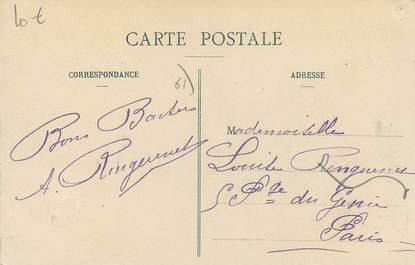 10 €
CARTE POSTALE
CORRESPONDANCE
61
ADRESSE
Bons Baisers
A. Ringuenet
Mademoiselle
Louise Ringuenet
5 Pge du Génie
Paris